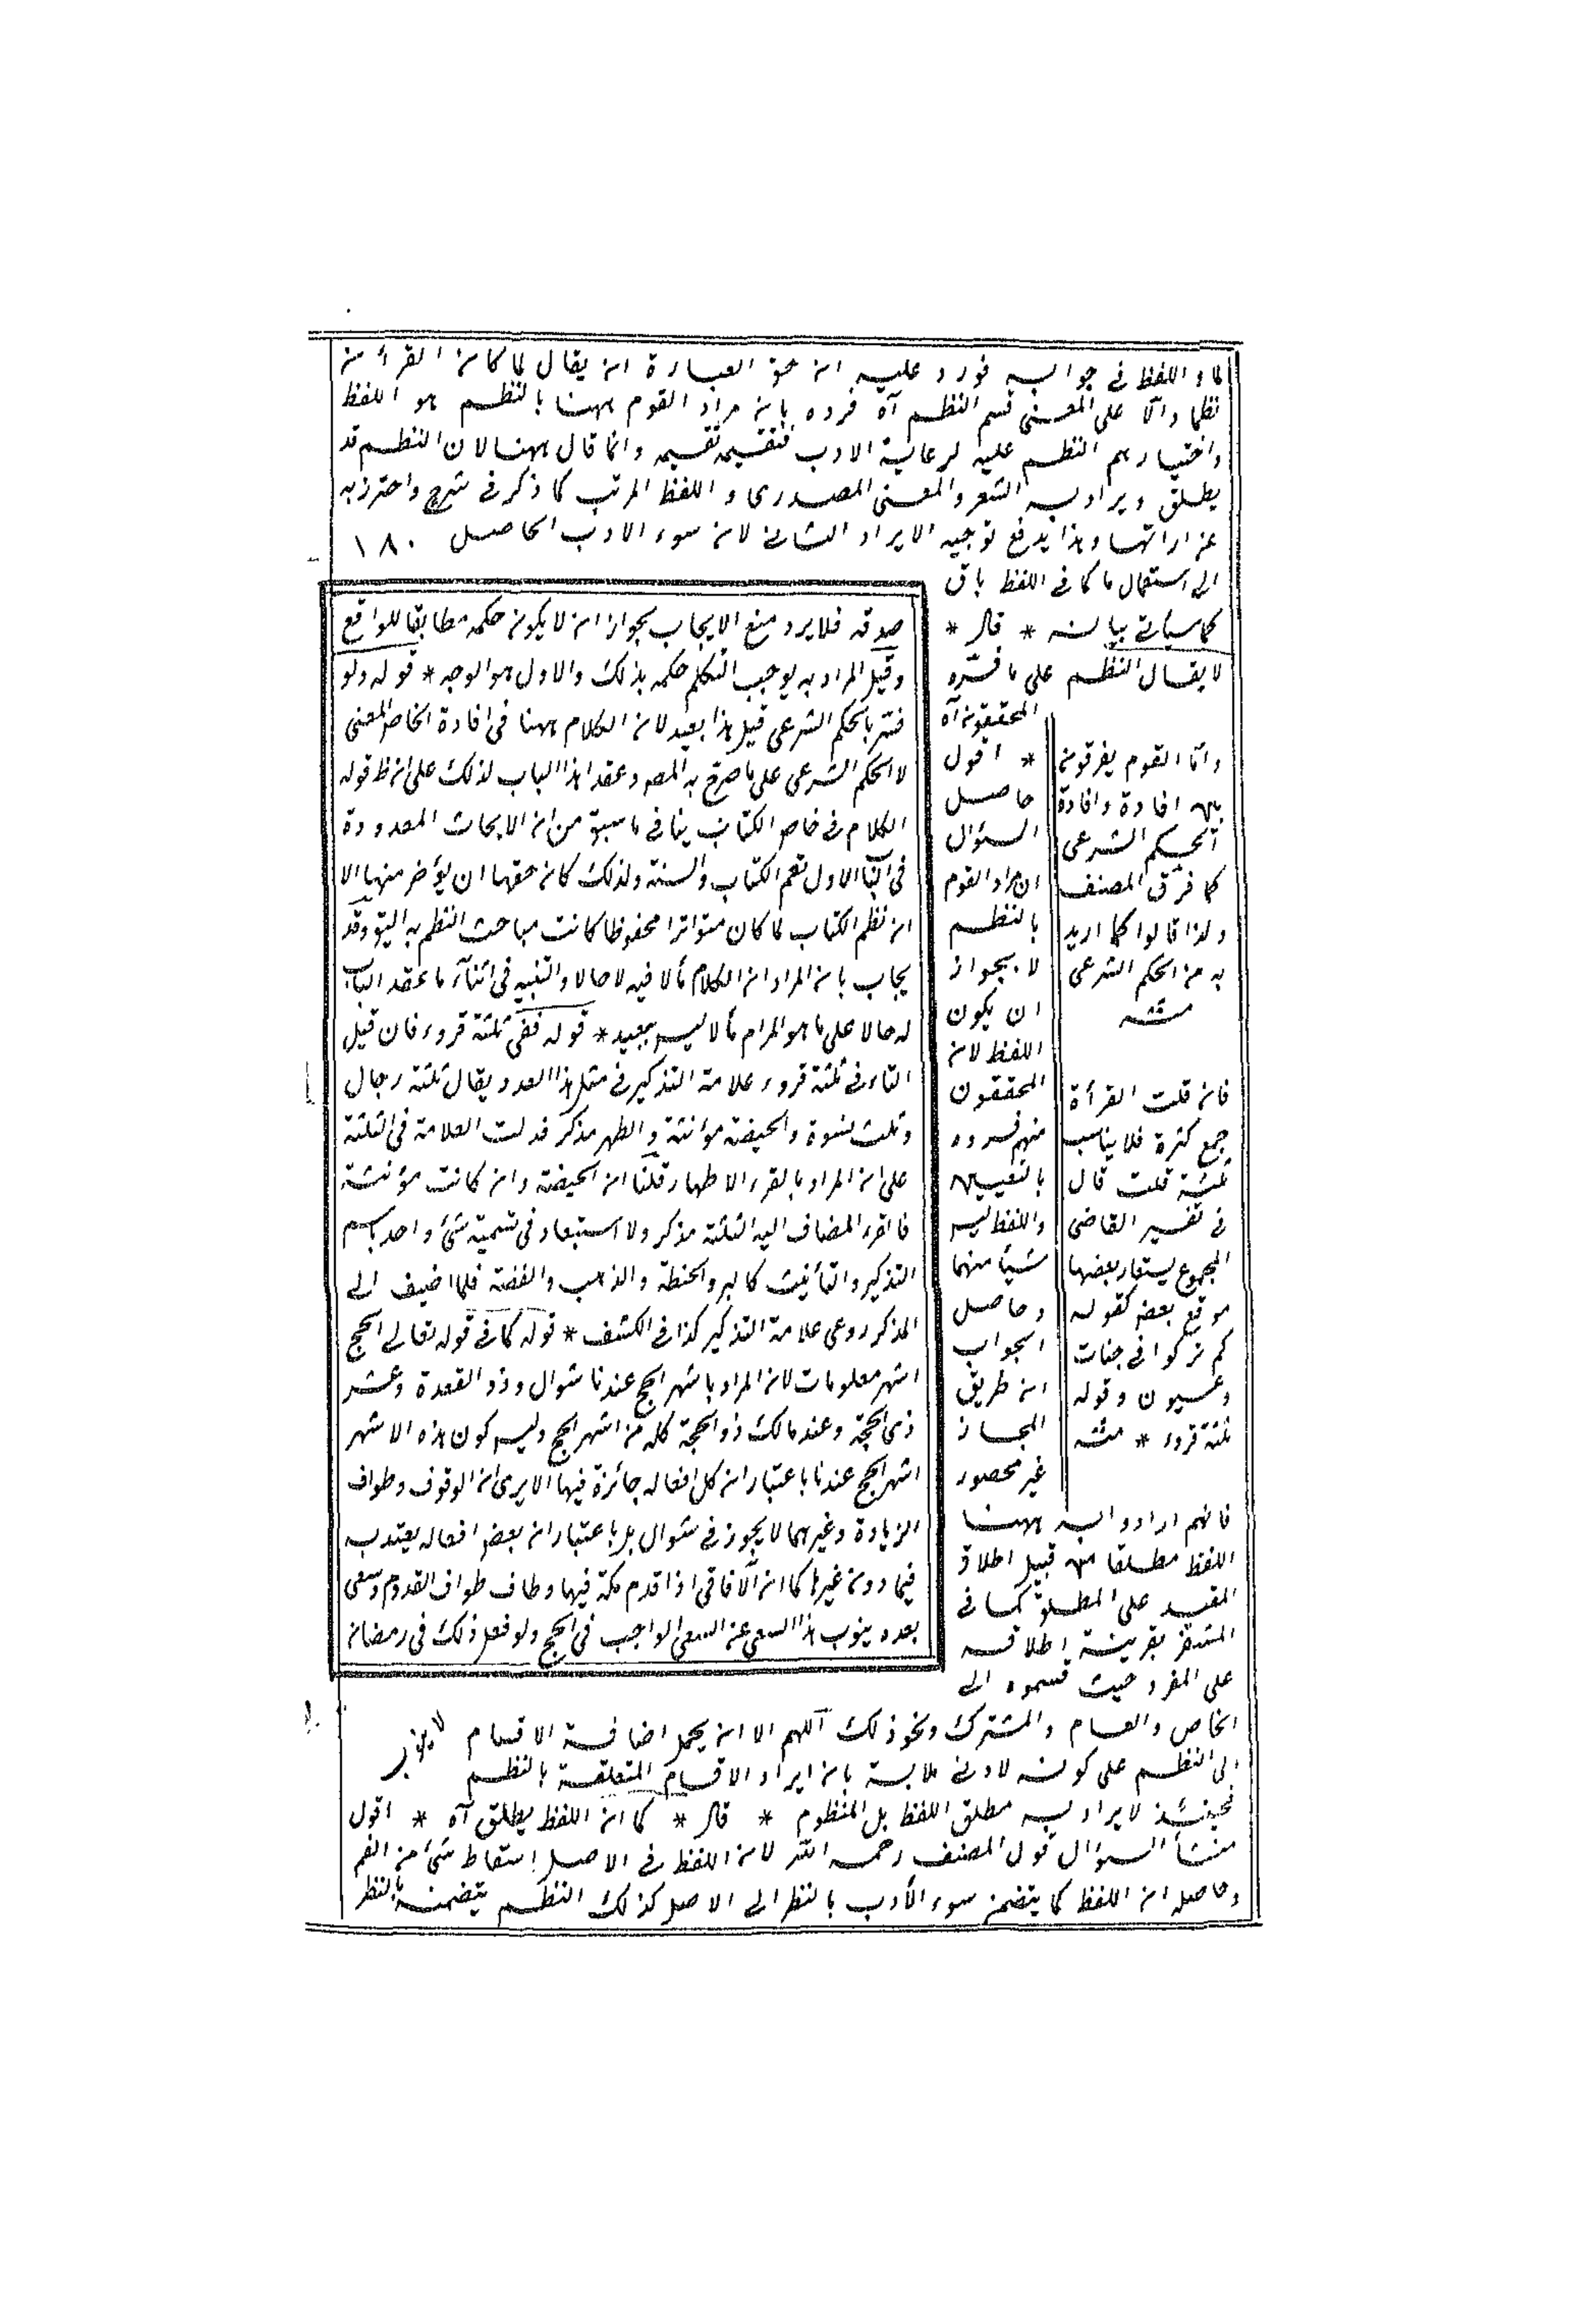 لما و اللفظ فى جوابه فورد عليه ان حق العبارة ان يقال لما كان القرأن
نظما دالا على المعنى قسم النظم آه فرده بان مراد القوم ههنا بالنظم هو اللفظ
واختيارهم النظم عليه لرعاية الادب فتقسيمه تقسيمه وانما قال ههنا لان النظم قد
يطلق ويراد به الشعر والمعنى المصدرى و اللفظ المرتب كما ذكر فى شرح واحترز به
عن ارادتها وهذا يدفع توجيه الايراد الثانى لان سوء الادب الحاصل ١٨٠
الى استعمال ما كان فى اللفظ باق
كما سيأتى بيانه * قال *
لا يقال النظم على ما فسّره
المحققون آه
* اقول
حاصل
السؤال
ان مراد القوم
بالنظم
لا يجوز
ان يكون
اللفظ لان
المحققون
منهم فسروه
بالتعيين
واللفظ ليس
شيئا منهما
وحاصل
الجواب
ان طريق
المجاز
غير محصور
فانهم ارادوا به ههنا
اللفظ مطلقا من قبيل اطلاق
المقيد على المطلق كما فى
المشفر بقرينة اطلاقه
على المفرد حيث قسموه الى
الخاص والعام والمشترك ونحو ذلك اللهم الا ان يحمل اضافة الاقسام
الى النظم على كونه لادنى ملابسة بان ايراد الاقسام المتعلقة بالنظم
فحينئذ لا يراد به مطلق اللفظ بل المنظوم * قال * كما ان اللفظ يطلق آه * اقول
منشأ السؤال قول المصنف رحمه الله لان اللفظ فى الاصل اسقاط شئ من الفم
وحاصله ان اللفظ كما يتضمن سوء الأدب بالنظر الى الاصل كذلك النظم يتضمنه بالنظر
وامّا القوم يفرقون
بين افادة وافادة
الحكم الشرعى
كما فرق المصنف
ولذا قالوا كما اريد
به من الحكم الشرعى
منه
فان قلت القرأة
جمع كثرة فلا يناسب
ثلثة قلت قال
فى تفسير القاضى
الجموع يستعار بعضها
موقع بعض كقوله
كم تركوا فى جنات
وعيون وقوله
ثلثة قروء * منه
صدقه فلا يرد منع الايجاب بجواز ان لا يكون حكمه مطابقا للواقع
وقيل المراد به يوجب التكلم حكمه بذلك والاول هو الوجه * قوله ولو
فسّر بالحكم الشرعى قيل هذا بعيد لان الكلام ههنا فى افادة الخاص المعنى
لا الحكم الشرعى على ما صرح به المصـ وعقد هذا الباب لذلك على ان ظ قوله
الكلام فى خاص الكتاب ينافى ما سبق من ان الابحاث المعدودة
فى الاول تعم الكتاب والسنة ولذلك كان حقها ان يؤخر منهما الا
ان نظم الكتاب لما كان متواترا محفوظا كانت مباحث النظم به اليق وقد
يجاب بان المراد ان الكلام مآلا فيه لا حالا والتنبيه فى اثناء ما عقد الباب
له حالا على ما هو المرام مآلا ليس ببعيد * قوله ففى ثلثة قروء فان قيل
التاء فى ثلثة قروء علامة التذكير فى مثل هذا العدد يقال ثلثة رجال
وثلث نسوة والحيضة مؤنثة والطهر مذكر فدلت العلامة فى الثلثة
على ان المراد بالقرء الاطهار قلنا ان الحيضة وان كانت مؤنثة
فالقرء المضاف اليه الثلثة مذكر ولا استبعاد فى تسمية شئ واحد باسم
التذكير والتأنيث كالبر والحنطة والذهب والفضة فلما اضيف الى
المذكر روعى علامة التذكير كذا فى الكشف * قوله كما فى قوله تعالى الحج
اشهر معلومات لان المراد باشهر الحج عندنا شوال وذو القعدة وعشر
ذى الحجة وعند مالك ذو الحجة كله من اشهر الحج وليس كون هذه الاشهر
اشهر الحج عندنا باعتبار ان كل افعاله جائزة فيها الا يرى ان الوقوف وطواف
الزيارة وغيرهما لا يجوز فى شوال بل باعتبار ان بعض افعاله يعتد به
فيها دون غيرها كما ان الآفاقى اذا قدم مكة فيها وطاف طواف القدوم وسعى
بعده ينوب هذا السعى عن السعى الواجب فى الحج ولو فعل ذلك فى رمضان